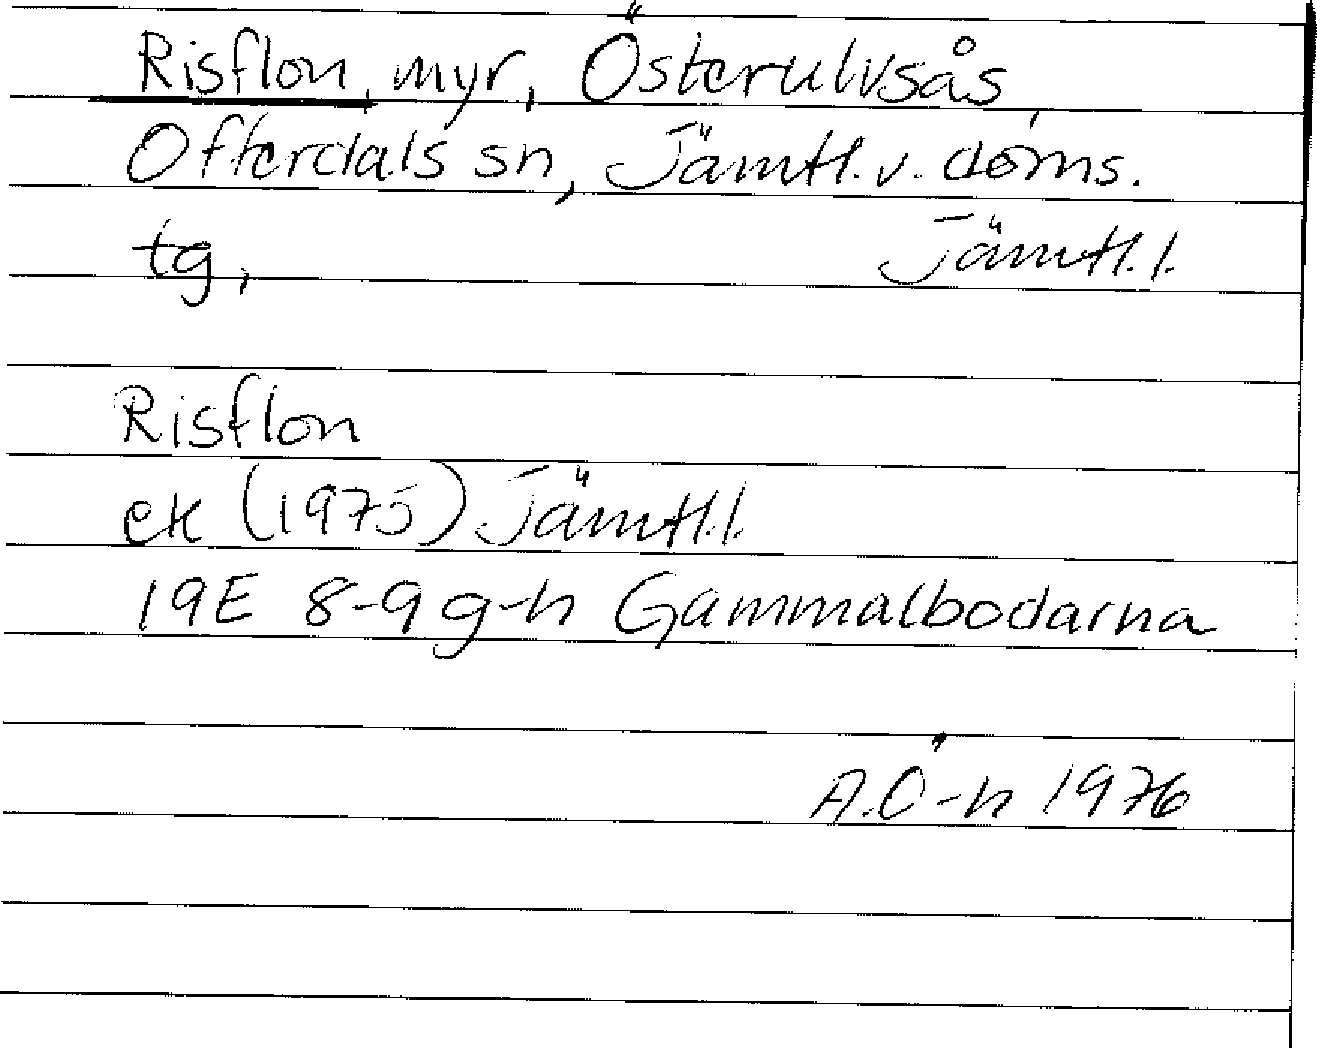 Risflon, myr, Österulvsås,
Offerdals sn, Jämtl. v. doms.
tg, Jämtl. l.
Risflon
ek (1975) Jämtl. l.
19E 8-9 g-h Gammalbodarna
A.Ö-n 1976